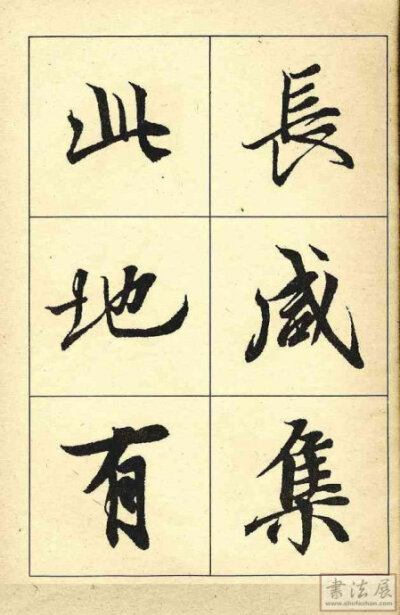 長咸集
此地有
書法展
www.shufazhan.com